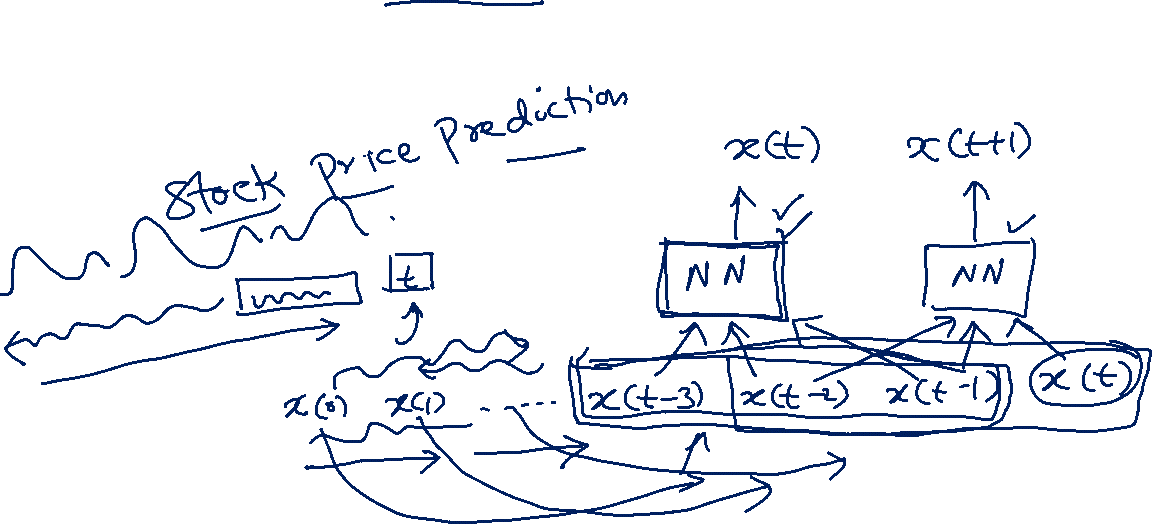 Stock Price Prediction
x(t) x(t+1)
NN NN
t
x(0) x(1) ...... x(t-3) x(t-2) x(t-1) x(t)